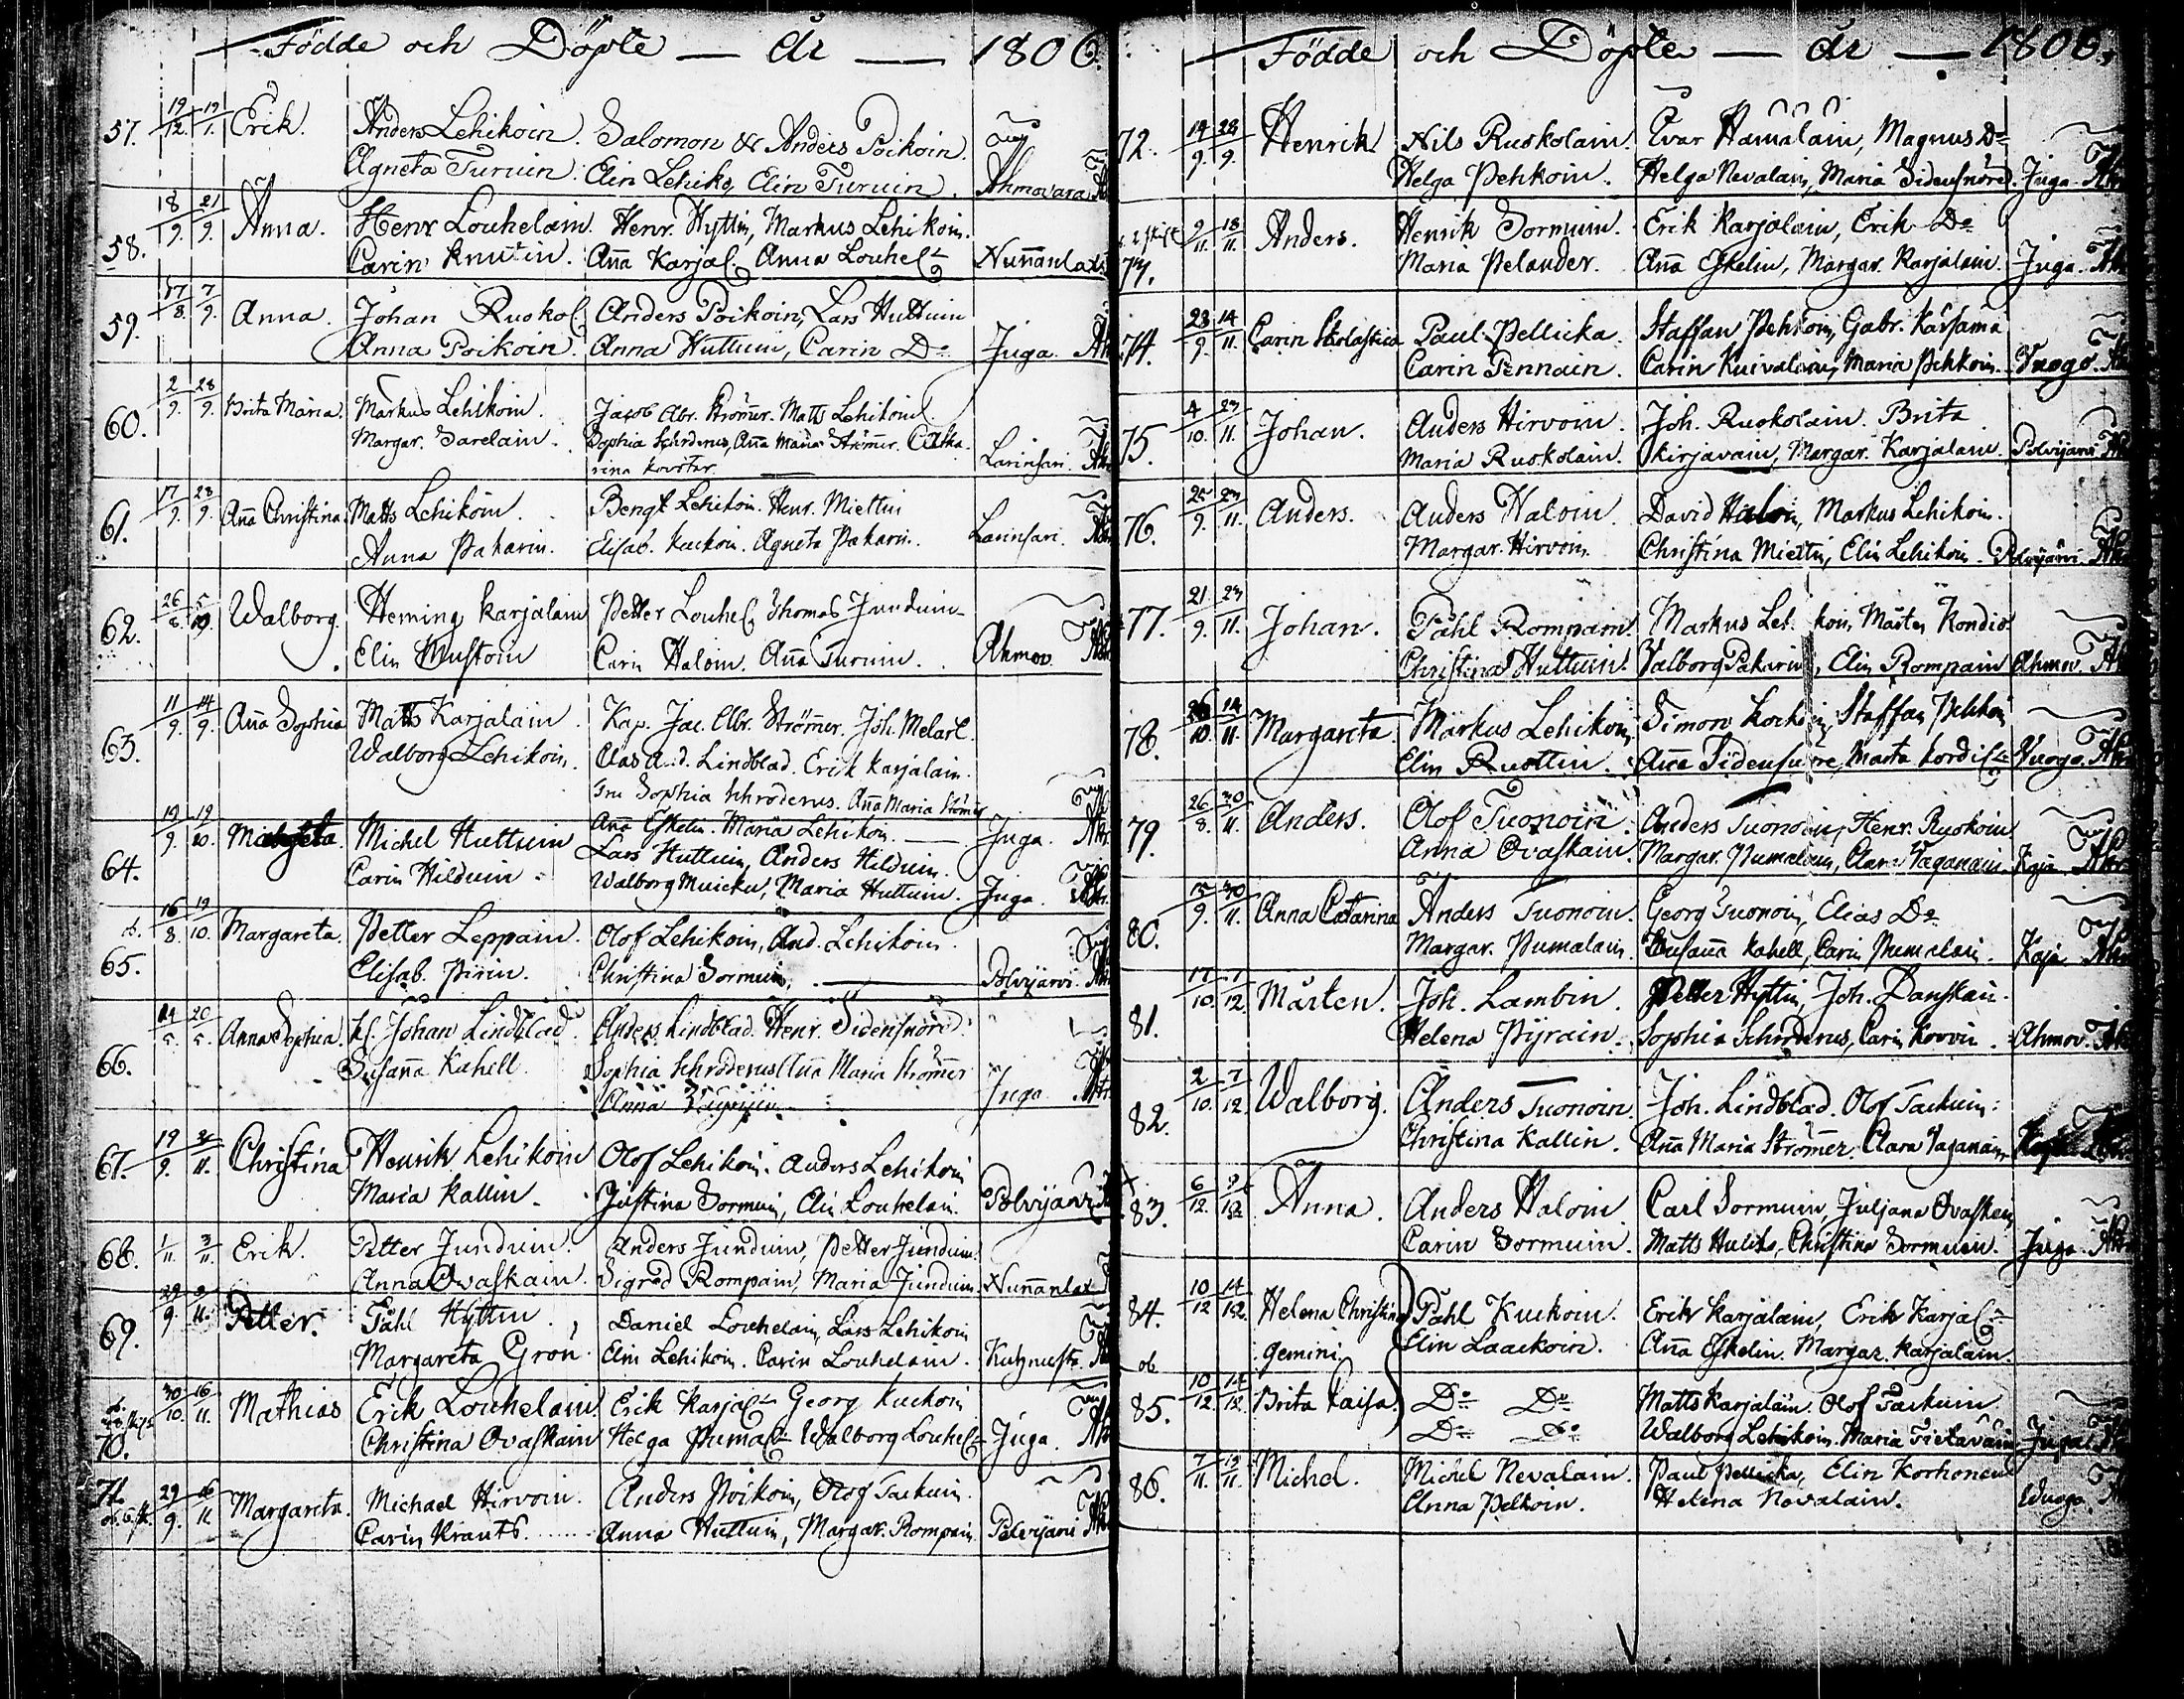 Födde och Döpte — år — 1806.
57. 19/12. 19/1. Erik. Anders Lehikoin. Salomon & Anders Poikoin.
Agneta Turuin. Elin Lehiko, Elin Turuin. Ahmovara
58. 18/9. 21/9. Anna. Henr Louhelain. Henr. Hyttin, Markus Lehikoin.
Carin Knutin. Aña Karjal. Anna Louhel Nuñanlax
59. 17/8. 7/9. Anna. Johan Ruokol. Anders Poikoin, Lars Huttuin
Anna Poikoin. Anna Huttuin, Carin Do Juga.
60. 2/9. 28/9. Brita Maria. Markus Lehikoin. Jacob Abr. Strömer. Matts Lehikoin.
Margar. Sarelain. Sophia Schroderus, Aña Maria Strömer. Catha
rina Larinsari.
61. 17/9. 28/9. Aña Christina. Matts Lehikoin. Bengt Lehikoin. Henr. Miettin
Anna Pakarin. Elisab. Kuckoin. Agneta Pakarin. Larinsari.
62. 26/8. 5/10. Walborg. Heming Karjalain Petter Louhel. Thomas Junduin
Elin Mustoin Carin Haloin. Aña Turuin. Ahmov.
63. 11/9. 14/9. Aña Sophia Matts Karjalain. Kap. Jac. Abr. Strömer. Joh. Melart.
Walborg Lehikoin. And. Lindblad. Erik Karjalain.
Sophia Schroderus. Aña Maria Strömer
Aña Eskelin. Maria Lehikoin. Juga.
64. 19/9. 19/10. Michel Huttuin Lars Huttuin, Anders Hilduin.
Carin Hilduin Walborg Muicku, Maria Huttuin. Juga.
65. 16/8. 19/10. Margareta. Petter Leppäin. Olof Lehikoin, And. Lehikoin.
Elisab. Piirin. Christina Sormuin, Polvijärvi.
66. 20/5. Anna Sophia. Johan Lindblad. Anders Lindblad. Henr. Sidensnöre.
Susaña Kahell. Sophia Schroderus Aña Maria Strömer
Anna Juga.
67. 19/9. Christina Henrik Lehikoin Olof Lehikoin. Anders Lehikoin
Maria Kallin. Justina Sormuin, Elin Louhelain. Polvijärvi
68. 1/11. 3/11. Erik. Petter Junduin. Anders Junduin, Petter Junduin.
Anna Ovaskain. Sigred Rompain, Maria Junduin Nuñanlax
69. 29/9. Petter. Påhl Hyttin. Daniel Louhelain, Lars Lehikoin
Margareta Grön. Elin Lehikoin. Carin Louhelain.
70. 30/10. 16/11. Mathias Erik Louhelain. Erik Karjal Georg Kuckoin
Christina Ovaskain Helga Pumal Walborg Louhel Juga.
71. 29/9. 16/11 Margareta. Michael Hirvoin. Anders Poikoin, Olof Tackuin.
Carin Krants. Anna Huttuin, Margar. Rompain. Polvijärvi
Födde och Döpte — år — 1806.
72. 14/9. 28/9. Henrik Nils Ruokolain. Ivar Hämäläin, Magnus Do
Helga Pehkoin. Helga Nevalain, Maria Sidensnöre. Juga.
9/11. 18/11. Anders. Henrik Sormuin. Erik Karjalain, Erik Do
Maria Pelander. Aña Eskelin, Margar. Karjalain. Juga.
74. 23/9. 14/11. Carin Skolastica Paul Pellicka. Staffan Pehkoin, Gabr. Kärsämä
Carin Tennäin. Carin Kuivalain, Maria Pehkoin. Vuogo.
75. 4/10. 23/11. Johan. Anders Hirvoin. Joh. Ruokolain. Brita
Maria Ruokolain. Kirjavain, Margar. Karjalain. Polvijärvi
76. 25/9. 23/11. Anders. Anders Haloin. David Haloin, Markus Lehikoin.
Margar. Hirvoin. Christina Miettin, Elin Lehikoin. Polvijärvi.
77. 21/9. 23/11. Johan. Påhl Rompain. Markus Leh koin, Mårten Kondio.
Christina Huttuin. Valborg Pakarin, Elin Rompain Ahmov.
78. 14/11. Margareta. Markus Lehikoin Simon Staffan Pehkoin
Elin Ruottin. Aña Sidensnöre, Marta Vuogo.
79. 26/8. 30/11. Anders. Olof Tuonoin. Anders Tuonoin, Henr. Ryokoin
Anna Ovaskain. Margar. Pumalain, Clara Vaganain. Kaja.
80. 15/9. 30/11. Anna Catarina Anders Tuonoin. Georg Tuonoin, Elias Do
Margar. Pumalain. Susaña Kahell, Carin Pumalain. Kaja
81. 17/10. 7/12. Mårten. Joh. Lambin. Petter Hyttin, Joh. Danskan.
Helena Pyräin. Sophia Schroderus, Carin Korvin. Ahmov.
82. 2/10. 7/12. Walborg. Anders Tuonoin. Joh. Lindblad. Olof Tackuin.
Christina Kallin. Aña Maria Strömer. Clara Vaganain
83. 6/12. Anna. Anders Haloin. Carl Sormuin, Juljana Ovasken
Carin Sormuin. Matts Huliko, Christina Sormuin. Juga.
84. 10/12 14/12. Helena Christina Påhl Kuckoin. Erik Karjalain, Erik Karjal
gemini. Elin Laackoin. Aña Eskelin. Margar. Karjalain.
ob
85. 10/12 14/12. Brita Caisa. Do Do Matts Karjalain. Olof Tackuin
Do Do Walborg Lehikoin. Maria Tietäväin Juga.
86. 7/11. Michel. Michel Nevalain. Paul Pellicka, Elin Korhonen
Anna Pelkoin. Helena Nevalain. Wuogo.